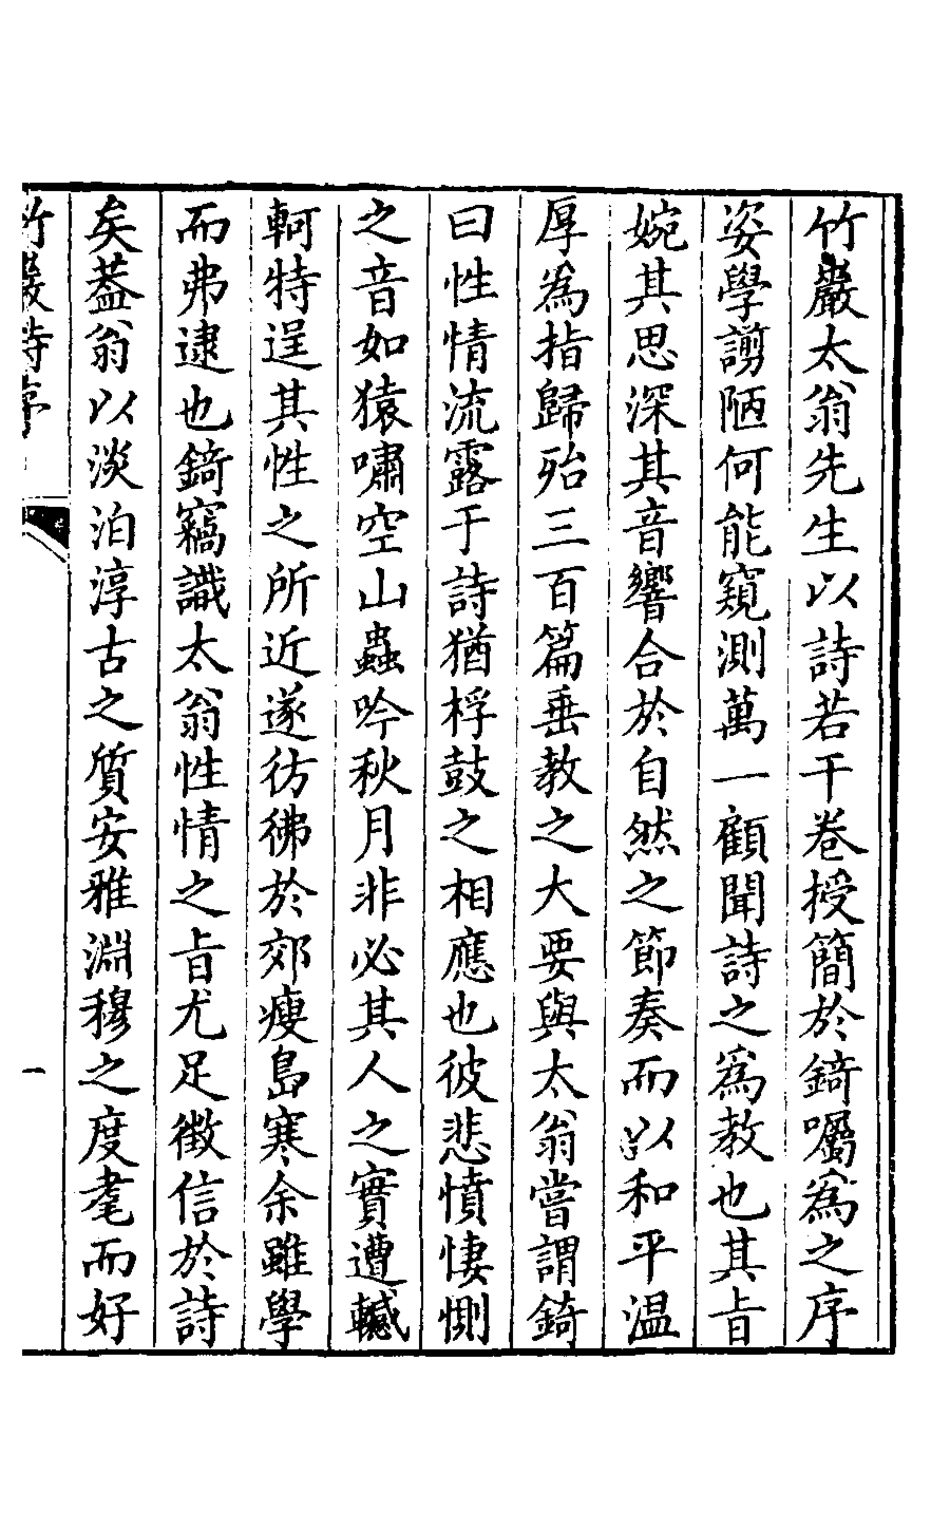 竹巖太翁先生以詩若干卷授簡於錡囑爲之序
姿學謭陋何能窺測萬一顧聞詩之爲教也其㫖
婉其思深其音響合於自然之節奏而以和平温
厚爲指歸殆三百篇垂教之大要與太翁嘗謂錡
曰性情流露于詩猶桴鼓之相應也彼悲憤悽惻
之音如猿嘯空山蟲吟秋月非必其人之實遭轗
軻特逞其性之所近遂彷彿於郊瘦島寒余雖學
而弗逮也錡竊識太翁性情之㫖尤足徵信於詩
矣葢翁以淡泊淳古之質安雅淵穆之度耄而好
竹巖詩序
一